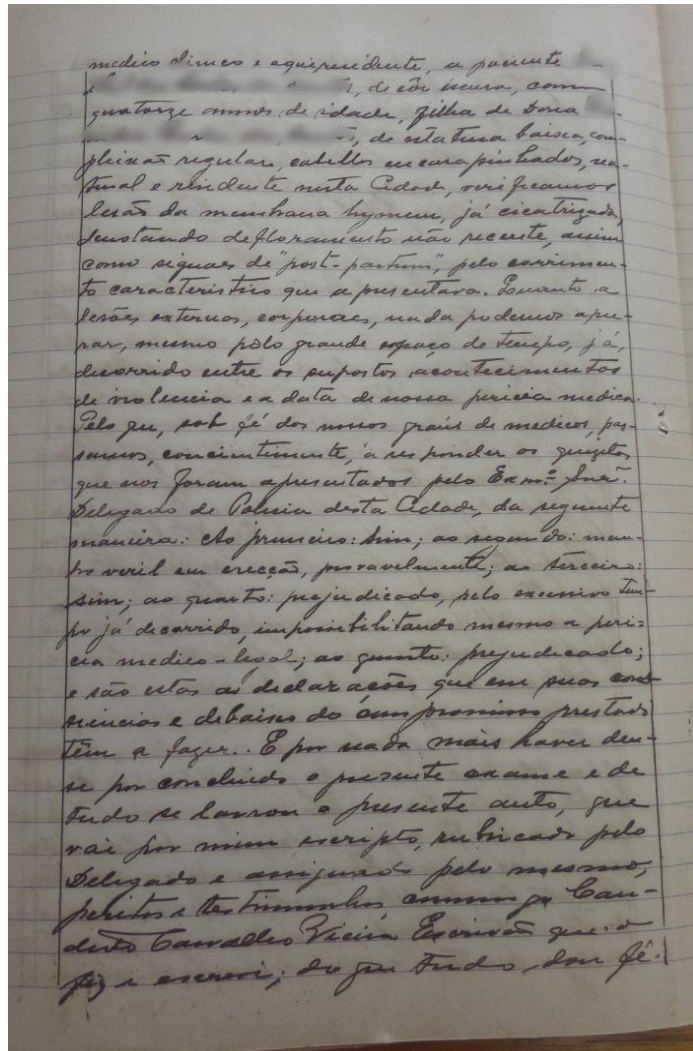 medico clinico e aqui residente, a paciente
, de côr escura, com
quatorze annos de idade, filha de Dona
, de estatura baixa, com-
pleixão regular, cabellos encarapinhados, na-
tural e residente nesta Cidade, verificamos
lesão da membrana hymen, já cicatrizada,
denotando defloramento não recente, assim
como signaes de "post-partum", pelo corrimen-
to caracteristico que apresentava. Quanto a
lesões externas, corporaes, nada podemos apu-
rar, mesmo pêlo grande espaço de tempo, já,
decorrido entre os supostos acontecimentos
de violencia e a data de nossa pericia medica.
Pelo que, sob fé dos nossos graús de medicos, pas-
samos, concientimente, à responder os quezitos
que nos foram apresentados pelo Exmº. Snrº.
Delegado de Policia desta Cidade, da seguinte
maneira: Ao primeiro: sim; ao segundo: mem-
bro veril em erecção, provavelmente; ao terceiro:
sim; ao quarto: prejudicado, pelo excessivo tem-
po já decorrido, impossibilitando mesmo a peri-
cia medico-legal; ao quinto: prejudicado;
e são estas as declarações que em suas cons-
siencias e debaixo do compromisso prestado
têm a fazer.. E por nada mais haver deu-
se por concluido o presente exame e de
tudo se lavrou o presente auto, que
vai por mim escripto, rubricado pelo
Delegado e assignado pelo mesmo,
peritos e testimunhas, commigo Can-
dido Carvalho Vieira Escrivão que o
fiz e escrevi; do que tudo dou fé.